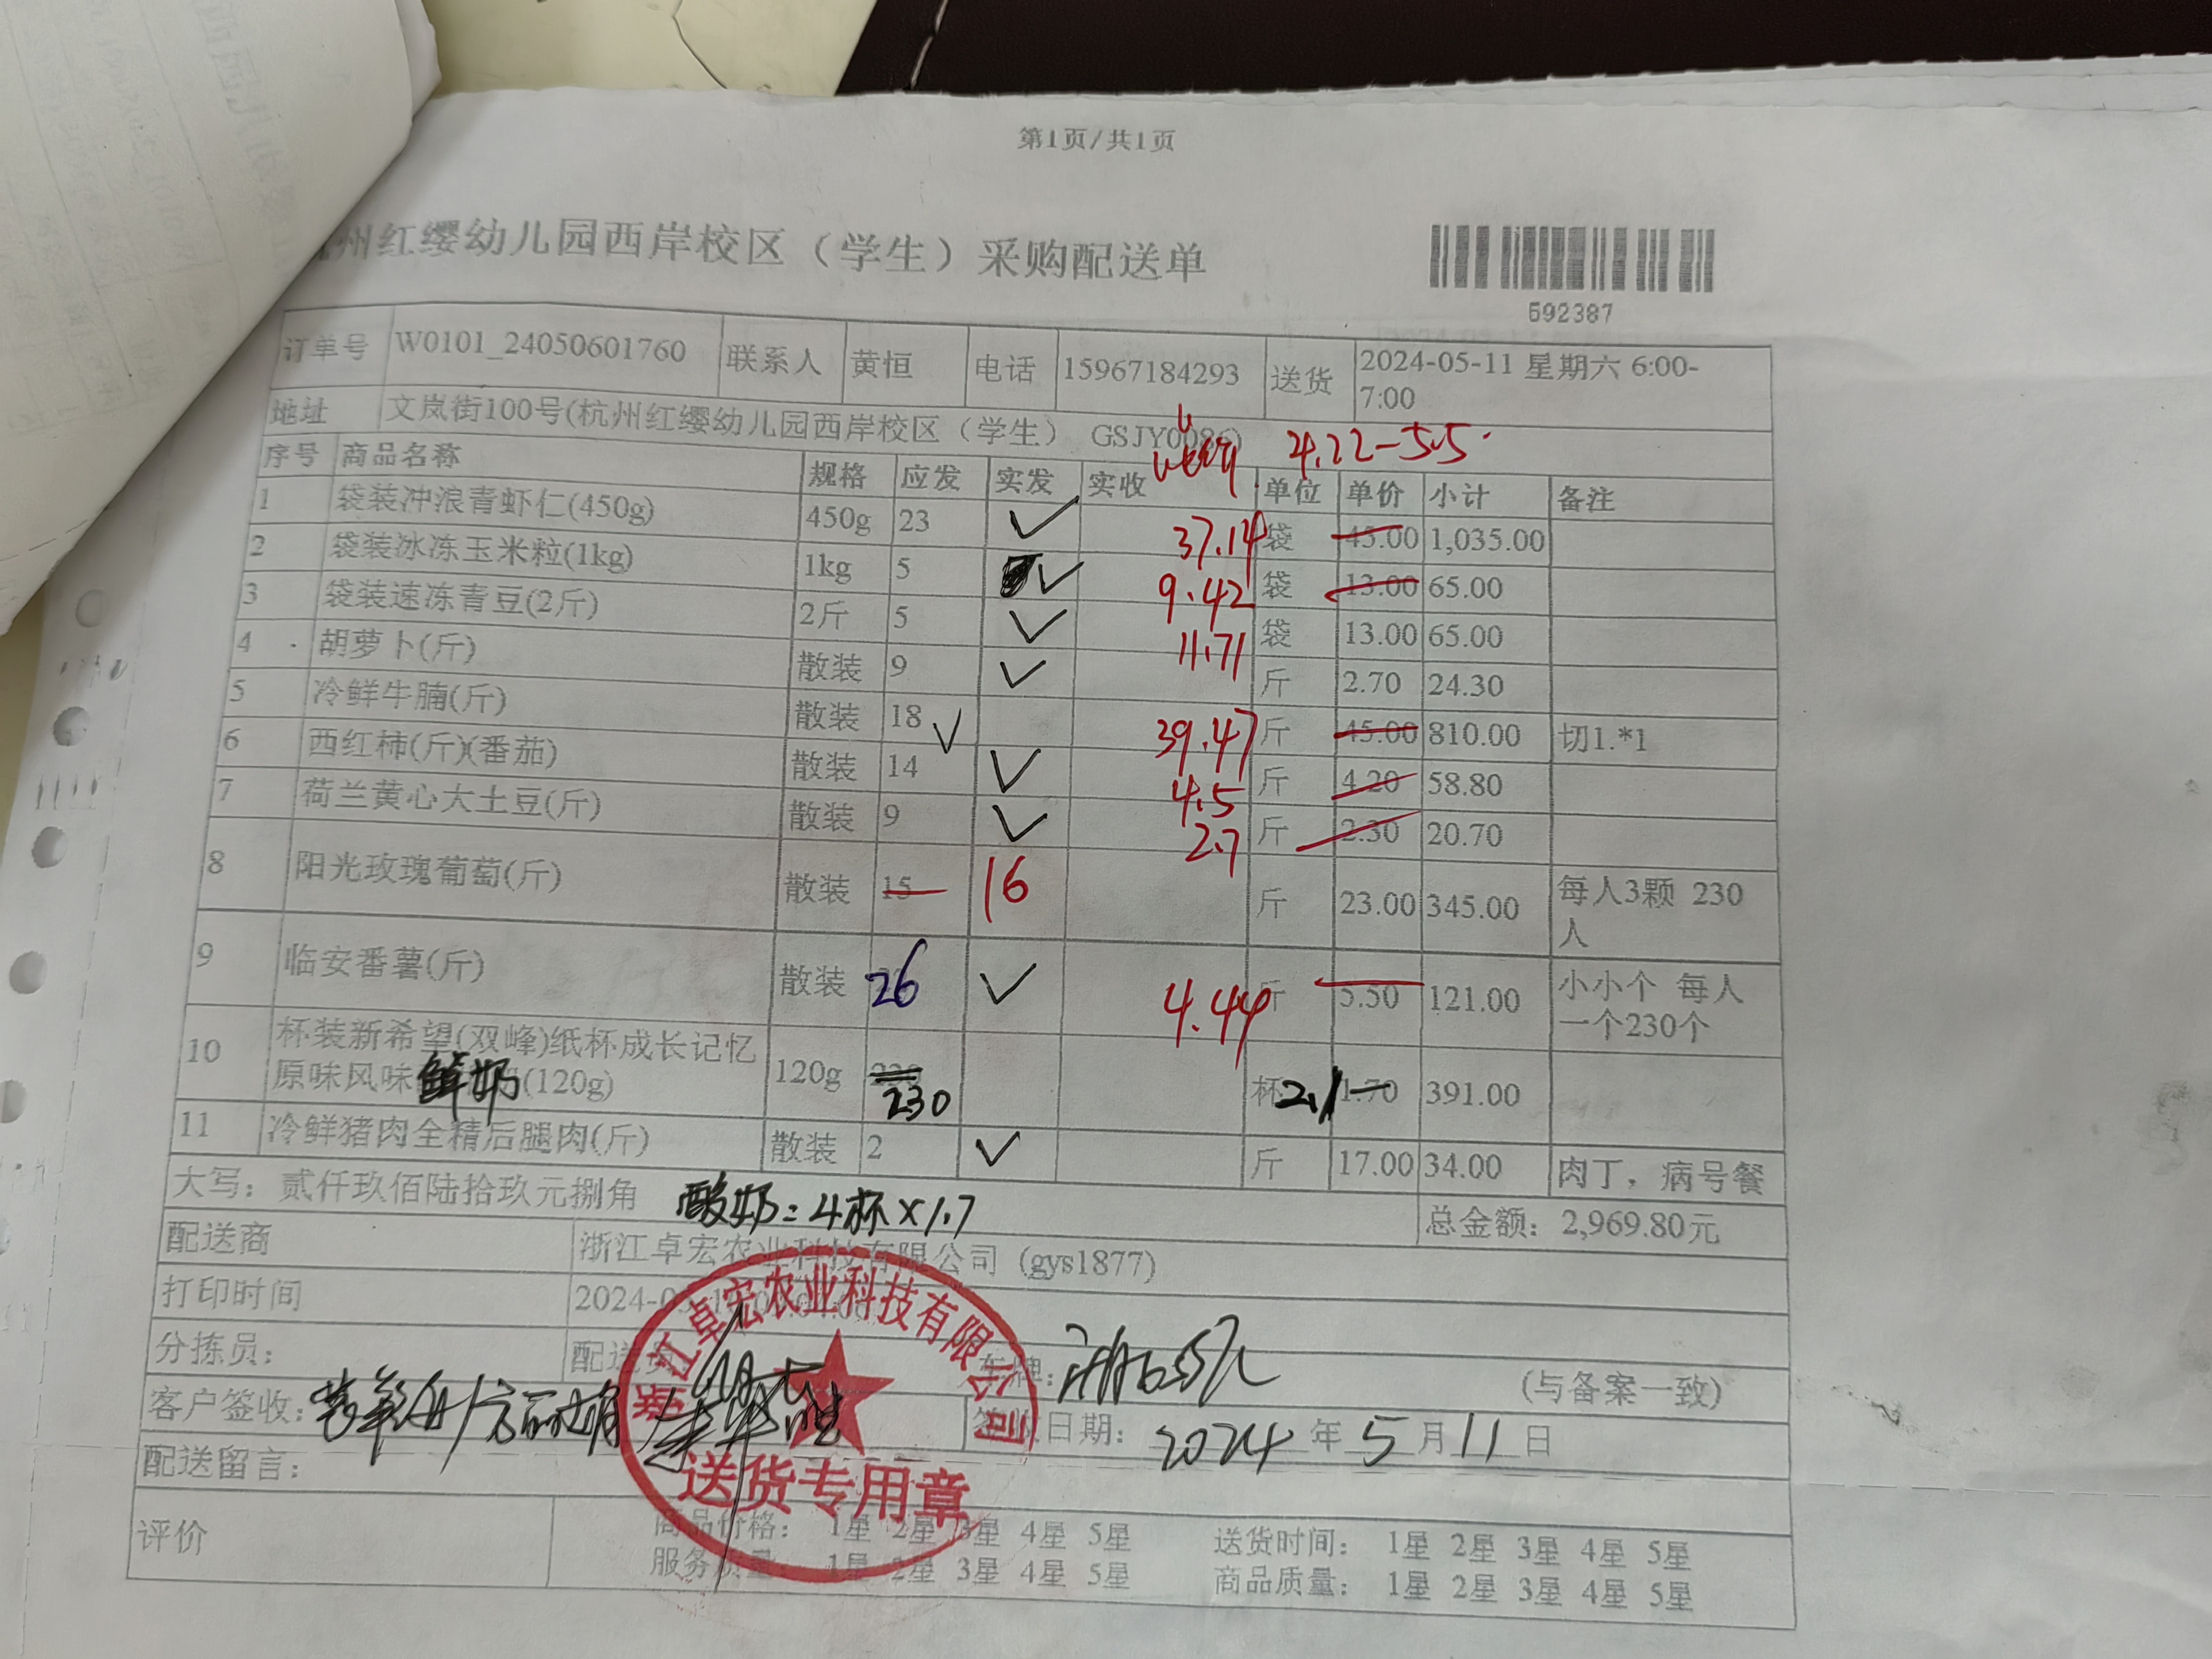 第1页/共1页
州红缨幼儿园西岸校区（学生）采购配送单
592387
订单号 W0101_24050601760 联系人 黄恒 电话 15967184293 送货 2024-05-11 星期六 6:00-7:00
地址 文岚街100号(杭州红缨幼儿园西岸校区（学生） GSJY0086)
4.22-5.5
序号 商品名称 规格 应发 实发 实收 单位 单价 小计 备注
1 袋装冲浪青虾仁(450g) 450g 23 ✓ 37.14 袋 45.00 1,035.00
2 袋装冰冻玉米粒(1kg) 1kg 5 ✓ 9.42 袋 13.00 65.00
3 袋装速冻青豆(2斤) 2斤 5 ✓ 11.71 袋 13.00 65.00
4 胡萝卜(斤) 散装 9 ✓ 斤 2.70 24.30
5 冷鲜牛腩(斤) 散装 18 ✓ 39.47 斤 45.00 810.00 切1.*1
6 西红柿(斤)(番茄) 散装 14 ✓ 4.5 斤 4.20 58.80
7 荷兰黄心大土豆(斤) 散装 9 ✓ 2.7 斤 2.30 20.70
8 阳光玫瑰葡萄(斤) 散装 15 16 斤 23.00 345.00 每人3颗 230人
9 临安番薯(斤) 散装 26 ✓ 4.44 斤 5.50 121.00 小小个 每人一个230个
10 杯装新希望(双峰)纸杯成长记忆原味风味鲜奶(120g) 120g 230 杯 2.1 1.70 391.00
11 冷鲜猪肉全精后腿肉(斤) 散装 2 ✓ 斤 17.00 34.00 肉丁，病号餐
大写：贰仟玖佰陆拾玖元捌角 酸奶：4杯×1.7 总金额：2,969.80元
配送商 浙江卓宏农业科技有限公司 (gys1877)
打印时间 2024-
分拣员： 配送员： 车牌： (与备案一致)
客户签收： 签收日期：2024年5月11日
配送留言：
浙江卓宏农业科技有限公司
送货专用章
评价 商品价格： 1星 2星 3星 4星 5星 送货时间： 1星 2星 3星 4星 5星
服务质量： 1星 2星 3星 4星 5星 商品质量： 1星 2星 3星 4星 5星